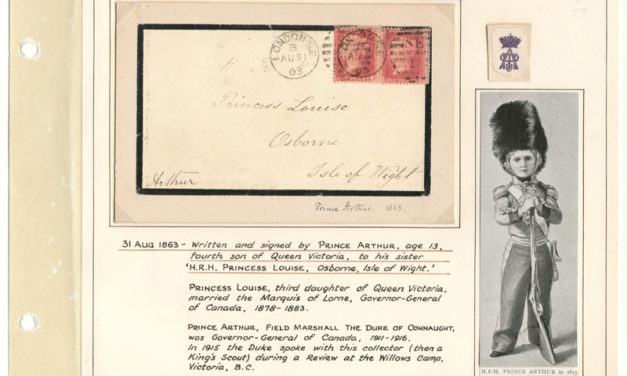 LONDON.S.E
AU31
63
Princess Louise
Osborne
Isle of Wight
Arthur
Prince Arthur. 1863.
31 AUG 1863 - Written and signed by PRINCE ARTHUR, age 13,
fourth son of Queen Victoria, to his sister
'H.R.H. PRINCESS LOUISE, Osborne, Isle of Wight.'
PRINCESS LOUISE, third daughter of Queen Victoria,
married the Marquis of Lorne, Governor-General
of Canada, 1878-1883.
PRINCE ARTHUR, FIELD MARSHALL THE DUKE OF CONNAUGHT,
was Governor-General of Canada, 1911-1916.
In 1915 the Duke spoke with this collector (then a
King's Scout) during a Review at the Willows Camp,
Victoria, B.C.
H.R.H. PRINCE ARTHUR in 1855